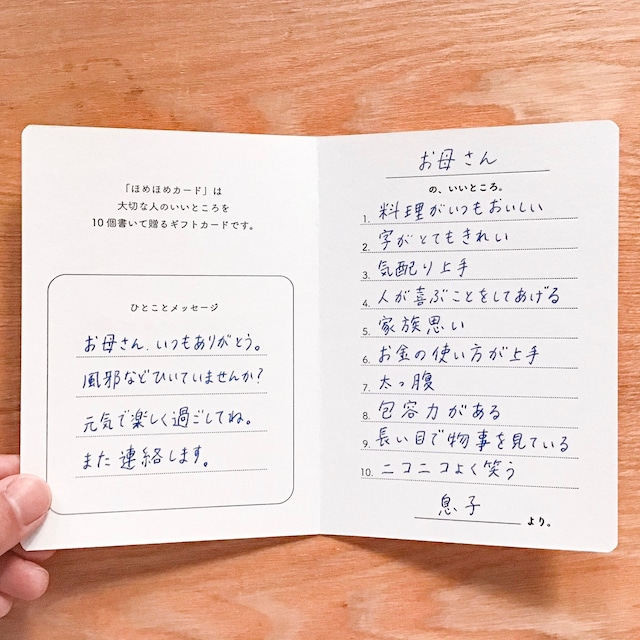 「ほめほめカード」は
大切な人のいいところを
10個書いて贈るギフトカードです。
ひとことメッセージ
お母さん、いつもありがとう。
風邪などひいていませんか?
元気で楽しく過ごしてね。
また連絡します。
お母さん
の、いいところ。
1. 料理がいつもおいしい
2. 字がとてもきれい
3. 気配り上手
4. 人が喜ぶことをしてあげる
5. 家族思い
6. お金の使い方が上手
7. 太っ腹
8. 包容力がある
9. 長い目で物事を見ている
10. ニコニコよく笑う
息子 より。